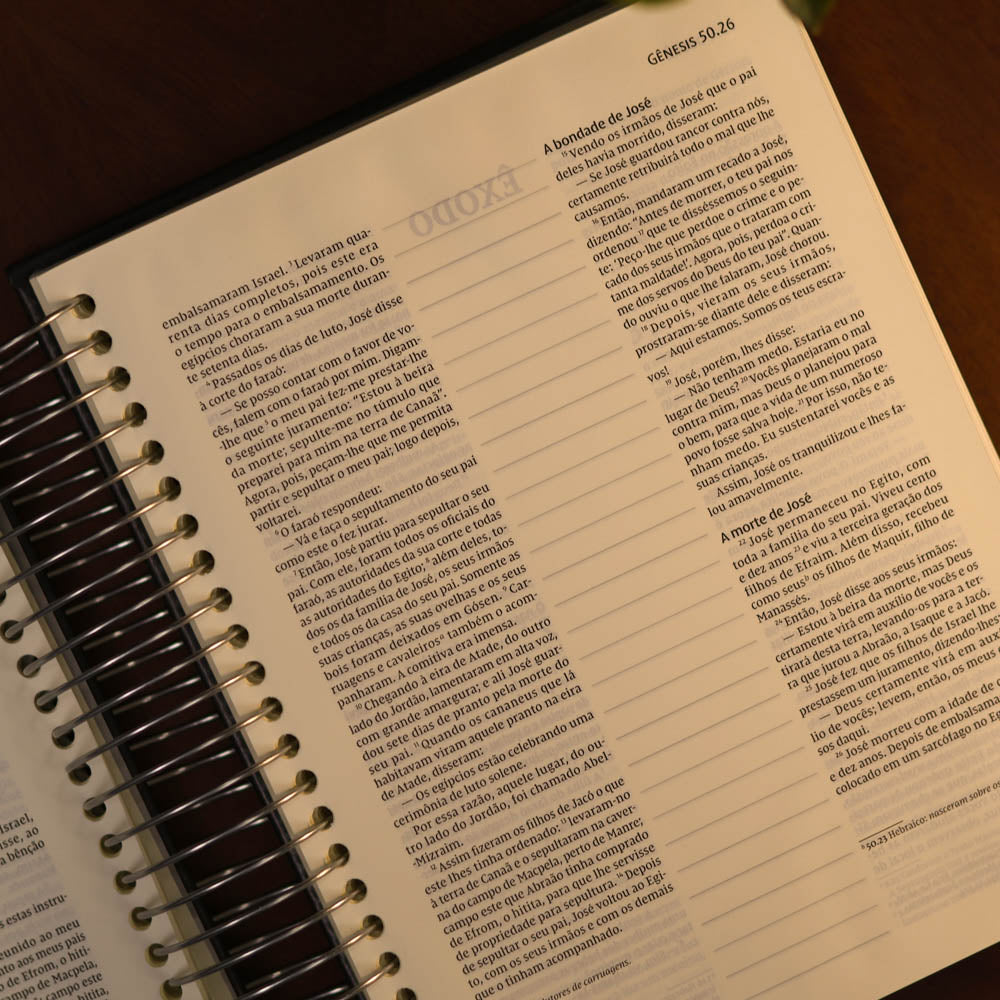 GÊNESIS 50.26
embalsamaram Israel. ³Levaram qua-
renta dias completos, pois este era
o tempo para o embalsamamento. Os
egípcios choraram a sua morte duran-
te setenta dias.
⁴Passados os dias de luto, José disse
à corte do faraó:
— Se posso contar com o favor de vo-
cês, falem com o faraó por mim. Digam-
-lhe que ⁵o meu pai fez-me prestar-lhe
o seguinte juramento: “Estou à beira
da morte; sepulte-me no túmulo que
preparei para mim na terra de Canaã”.
Agora, pois, peçam-lhe que me permita
partir e sepultar o meu pai; logo depois,
voltarei.
⁶O faraó respondeu:
— Vá e faça o sepultamento do seu pai
como este o fez jurar.
⁷Então, José partiu para sepultar o seu
pai. Com ele, foram todos os oficiais do
faraó, as autoridades da sua corte e todas
as autoridades do Egito, ⁸além deles, to-
dos os da família de José, os seus irmãos
e todos os da casa do seu pai. Somente as
suas crianças, as suas ovelhas e os seus
bois foram deixados em Gósen. ⁹Car-
ruagens e cavaleirosᵃ também o acom-
panharam. A comitiva era imensa.
¹⁰Chegando à eira de Atade, do outro
lado do Jordão, lamentaram em alta voz,
com grande amargura; e ali José guar-
dou sete dias de pranto pela morte do
seu pai. ¹¹Quando os cananeus que lá
habitavam viram aquele pranto na eira
de Atade, disseram:
— Os egípcios estão celebrando uma
cerimônia de luto solene.
Por essa razão, aquele lugar, do ou-
tro lado do Jordão, foi chamado Abel-
-Mizraim.
¹²Assim fizeram os filhos de Jacó o que
este lhes tinha ordenado: ¹³levaram-no
à terra de Canaã e o sepultaram na caver-
na do campo de Macpela, perto de Manre,
campo este que Abraão tinha comprado
de Efrom, o hitita, para que lhe servisse
de propriedade para sepultura. ¹⁴Depois
de sepultar o seu pai, José voltou ao Egi-
to, com os seus irmãos e com os demais
que o tinham acompanhado.
utores de carruagens.
A bondade de José
¹⁵Vendo os irmãos de José que o pai
deles havia morrido, disseram:
— Se José guardou rancor contra nós,
certamente retribuirá todo o mal que lhe
causamos.
¹⁶Então, mandaram um recado a José,
dizendo: “Antes de morrer, o teu pai nos
ordenou ¹⁷que te disséssemos o seguin-
te: ‘Peço-lhe que perdoe o crime e o pe-
cado dos seus irmãos que o trataram com
tanta maldade!’. Agora, pois, perdoa o cri-
me dos servos do Deus do teu pai”. Quan-
do ouviu o que lhe falaram, José chorou.
¹⁸Depois, vieram os seus irmãos,
prostraram-se diante dele e disseram:
— Aqui estamos. Somos os teus escra-
vos!
¹⁹José, porém, lhes disse:
— Não tenham medo. Estaria eu no
lugar de Deus? ²⁰Vocês planejaram o mal
contra mim, mas Deus o planejou para
o bem, para que a vida de um numeroso
povo fosse salva hoje. ²¹Por isso, não te-
nham medo. Eu sustentarei vocês e as
suas crianças.
Assim, José os tranquilizou e lhes fa-
lou amavelmente.
A morte de José
²²José permaneceu no Egito, com
toda a família do seu pai. Viveu cento
e dez anos ²³e viu a terceira geração dos
filhos de Efraim. Além disso, recebeu
como seusᵇ os filhos de Maquir, filho de
Manassés.
²⁴Então, José disse aos seus irmãos:
— Estou à beira da morte, mas Deus
certamente virá em auxílio de vocês e os
tirará desta terra, levando-os para a ter-
ra que jurou a Abraão, a Isaque e a Jacó.
²⁵José fez que os filhos de Israel lhe
prestassem um juramento, dizendo-lhes:
— Deus certamente virá em auxí-
lio de vocês; levem, então, os meus
sos daqui.
²⁶José morreu com a idade de c
e dez anos. Depois de embalsama
colocado em um sarcófago no E
ᵇ 50.23 Hebraico: nasceram sobre os
Israel,
isse, ao
a bênção
s estas instru-
eunido ao meu
nto aos meus pais
o de Efrom, o hiti-
campo de Macpela,
campo este
hitita,
ÊXODO